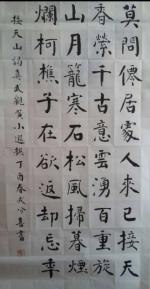 莫問僊居處人來已接天
香縈千古意雲湧百重旋
山月籠寒石松風掃暮煙
爛柯樵子在欲返却忘年
接天山謁真武觀 小道撰丁酉春 喜書